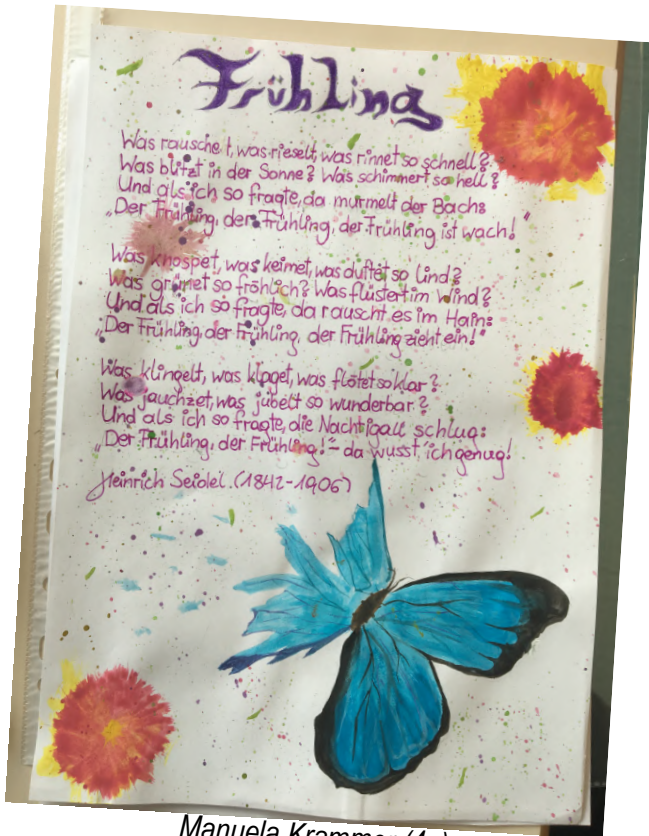 Frühling
Was rauschet, was rieselt, was rinnet so schnell?
Was blitzt in der Sonne? Was schimmert so hell?
Und als ich so fragte, da murmelt der Bach:
„Der Frühling, der Frühling, der Frühling ist wach!"
Was knospet, was keimet, was duftet so lind?
Was grünet so fröhlich? Was flüstert im Wind?
Und als ich so fragte, da rauscht es im Hain:
„Der Frühling, der Frühling, der Frühling zieht ein!"
Was klingelt, was klaget, was flötet so klar?
Was jauchzet, was jubelt so wunderbar?
Und als ich so fragte, die Nachtigall schlug:
„Der Frühling, der Frühling!"- da wusst' ich genug!
Heinrich Seidel (1842-1906)
Manuela Krammer